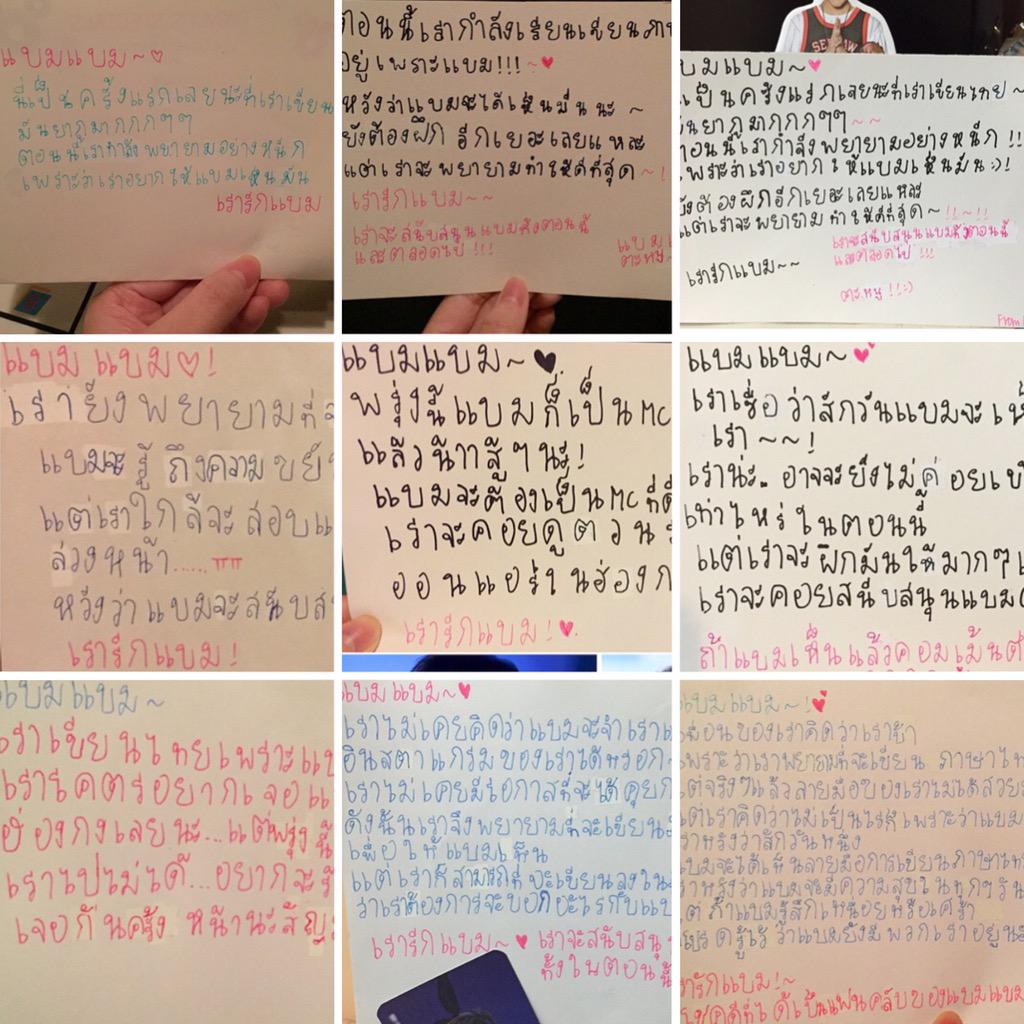 แบมแบม~♡
นี่เป็นครั้งแรกเลยนะที่เราเขียน
มันยากมากกกๆๆ
ตอนนี้เรากำลังพยายามอย่างหนัก
เพราะว่าเราอยากให้แบมเห็นมัน
เรารักแบม
ตอนนี้เรากำลังเรียนเขียนภา
อยู่ เพราะแบม!!! ~♥
หวังว่าแบมจะได้เห็นมันนะ ~
ยังต้องฝึก อีกเยอะเลยแหละ
แต่เราจะพยายามทำให้ดีที่สุด~!
เรารักแบม~~
เราจะสนับสนุนแบมทั้งตอนนี้
และตลอดไป !!!
แบม
SE
บมแบม~♥
เป็นครั้งแรกเลยนะที่เราเขียนไทย ~
มันยากมากกกๆๆ~~
ตอนนี้เรากำลังพยายามอย่างหนัก !!
เพราะว่าเราอยากให้แบมเห็นมัน:)!
ยังต้องฝึกอีกเยอะเลยแหละ
แต่เราจะพยายามทำให้ดีที่สุด~!!~!!
เราจะสนับสนุนแบมทั้งตอนนี้
และตลอดไป !!!
เรารักแบม~~
From
แบมแบม♡!
เรายังพยายามที่จ
แบมจะรู้ ถึงความขยั
แต่เราใกล้จะสอบแ
ล่วงหน้า......TT
หวังว่าแบมจะสนับส
เรารักแบม!
แบมแบม~♥
พรุ่งนี้แบมก็เป็นMC
แล้วน้าาสู้ๆนะ!
แบมจะต้องเป็นMCที่ดี
เราจะคอยดูตอน
ออนแอร์ในฮ่องก
เรารักแบม!♥
แบมแบม~♥
เราเชื่อว่าสักวันแบมจะเห็
เรา~~!
เราน่ะ.. อาจจะยังไม่ค่อยเ
เท่าไหร่ในตอนนี้
แต่เราจะฝึกมันให้มากๆเ
เราจะคอยสนับสนุนแบม
ถ้าแบมเห็นแล้วคอมเม้นต
แบมแบม~
เราเขียนไทยเพราะแบ
เราโคตรอยากเจอแ
ฮ่องกงเลยนะ...แต่พรุ่งนี้
เราไปไม่ได้...อยากจะ
เจอกันครั้ง หน้านะสัญ
แบมแบม~♥
เราไม่เคยคิดว่าแบมจะจำเรา
อินสตาแกรมของเราได้หรอก
เราไม่เคยมีโอกาสที่จะได้คุยก
ดังนั้นเราจึงพยายามที่จะเขียน
เพื่อให้แบมเห็น
แต่เราก็สามารถที่จะเขียนลงใน
ว่าเราต้องการจะบอกอะไรกับแบ
เรารักแบม~♥
เราจะสนับสนุ
ทั้งในตอนนี้
แบมแบม~!♥
เพื่อนของเราคิดว่าเราบ้า
เพราะว่าเราพยายามที่จะเขียน ภาษาไท
แต่จริงๆแล้วลายมือของเราไม่ได้สวย
แต่เราคิดว่าไม่เป็นไรก็เพราะว่าแบม
ราหวังว่าสักวันหนึ่ง
แบมจะได้เห็นลายมือการเขียนภาษาไท
ราหวังว่าแบมจะมีความสุขในทุกๆวัน
แต่ ถ้าแบมรู้สึกเหนื่อยหรือเศร้า
โปรดรู้ไว้ ว่าแบมยังมีพวกเราอยู่น
รารักแบม!~
โชคดีที่ได้เป็นแฟนคลับของแบมแบม